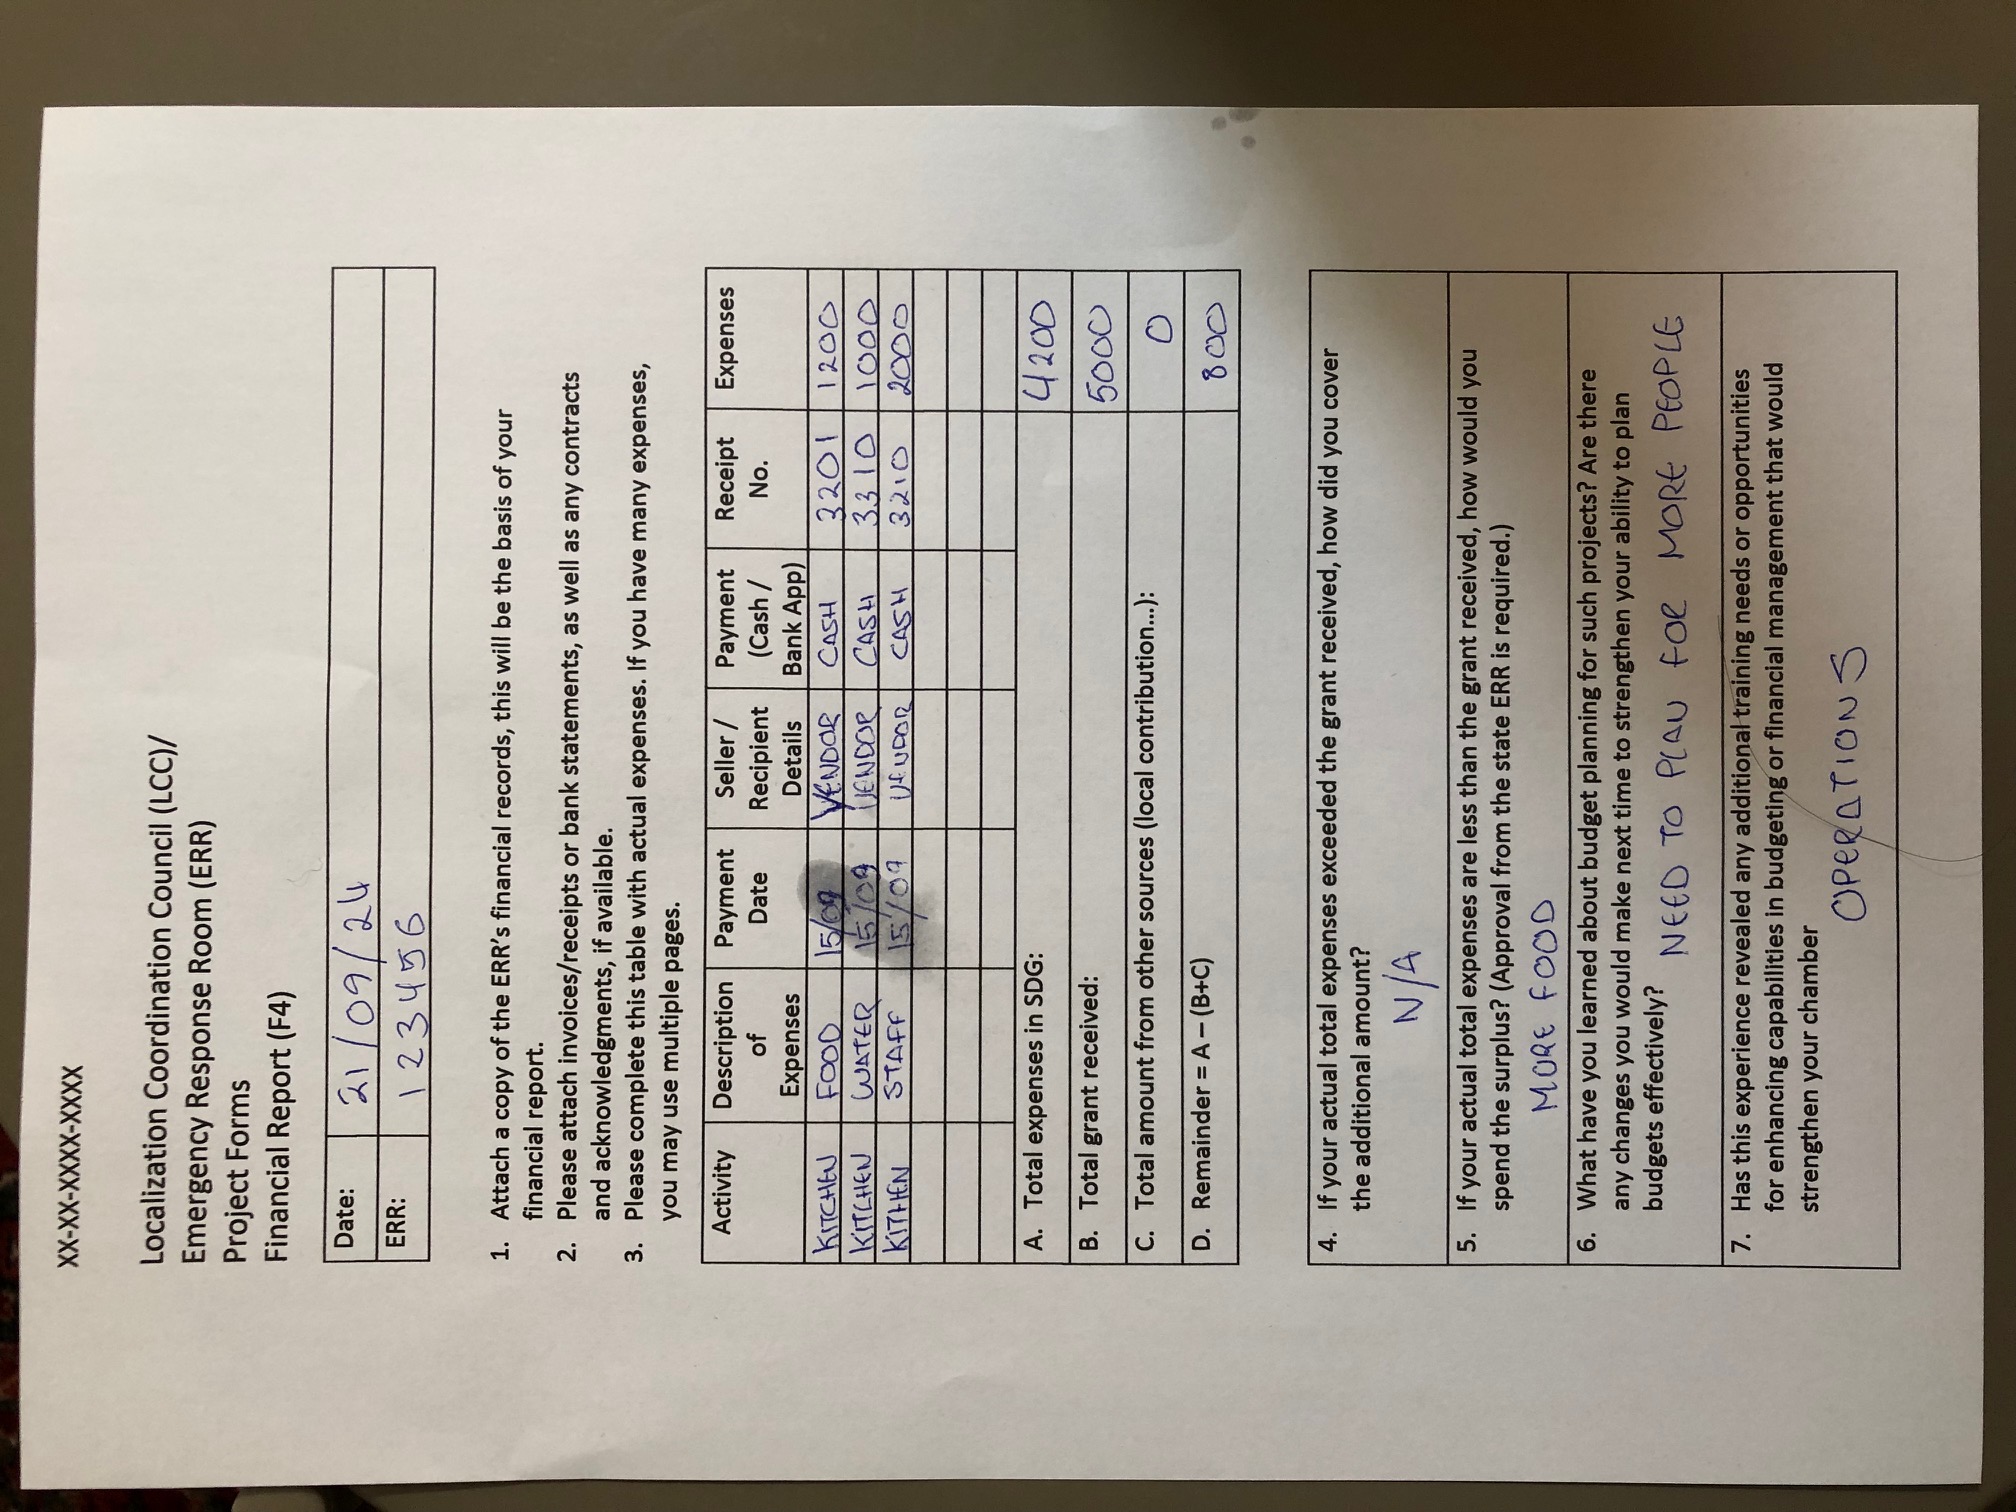 XX-XX-XXXX-XXXX
Localization Coordination Council (LCC)/
Emergency Response Room (ERR)
Project Forms
Financial Report (F4)
Date: 21/09/24
ERR: 123456
1. Attach a copy of the ERR's financial records, this will be the basis of your
financial report.
2. Please attach invoices/receipts or bank statements, as well as any contracts
and acknowledgments, if available.
3. Please complete this table with actual expenses. If you have many expenses,
you may use multiple pages.
Activity Description of Expenses Payment Date Seller / Recipient Details Payment (Cash / Bank App) Receipt No. Expenses
KITCHEN FOOD 15/09 VENDOR CASH 3201 1200
KITCHEN WATER 15/09 VENDOR CASH 3310 1000
KITHEN STAFF 15/09 VENDOR CASH 3210 2000
A. Total expenses in SDG: 4200
B. Total grant received: 5000
C. Total amount from other sources (local contribution...): 0
D. Remainder = A – (B+C) 800
4. If your actual total expenses exceeded the grant received, how did you cover
the additional amount?
N/A
5. If your actual total expenses are less than the grant received, how would you
spend the surplus? (Approval from the state ERR is required.)
MORE FOOD
6. What have you learned about budget planning for such projects? Are there
any changes you would make next time to strengthen your ability to plan
budgets effectively? NEED TO PLAN FOR MORE PEOPLE
7. Has this experience revealed any additional training needs or opportunities
for enhancing capabilities in budgeting or financial management that would
strengthen your chamber
OPERATIONS